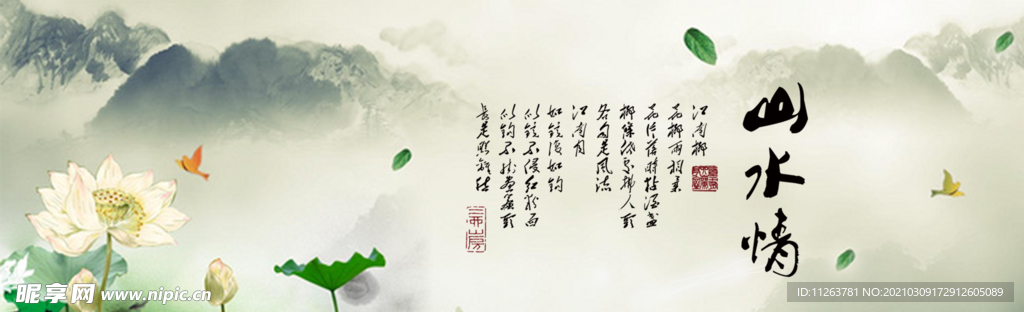 山水情
江南柳
花柳两相柔
花片落时黏酒盏
柳条低处拂人头
各自是风流
江南月
如镜复如钩
似镜不侵红粉面
似钩不挂画帘头
长是照离愁
昵享网 www.nipic.cn
ID:11263781 NO:20210309172912605089